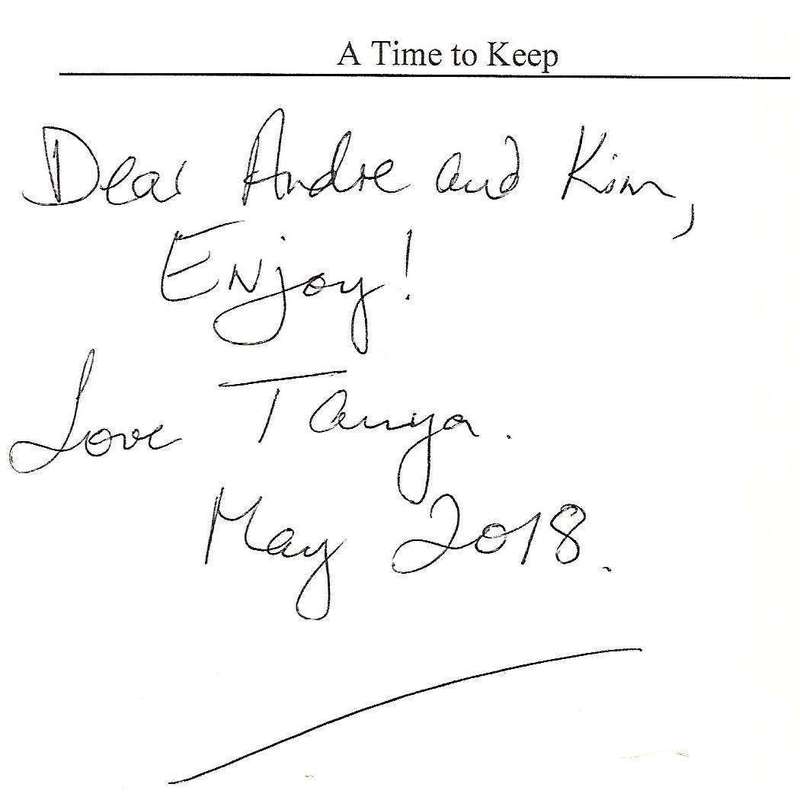 A Time to Keep
Dear Andre and Kim,
Enjoy!
Love Tanya.
May 2018.